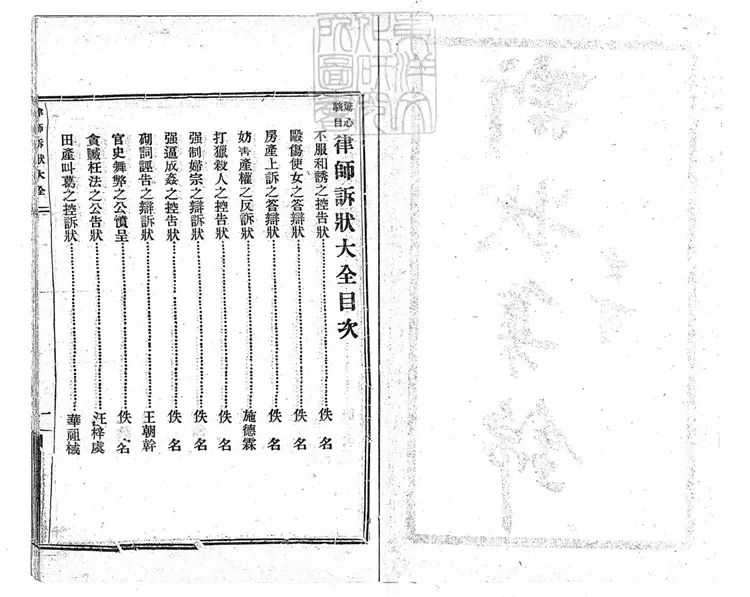 訴狀集錦
東洋文
化研究
所圖書
駭目 律師訴狀大全目次
不服和誘之控告狀………………佚名
毆傷使女之答辯狀………………佚名
房產上訴之答辯狀………………佚名
妨害產權之反訴狀………………施德霖
打獵殺人之控告狀………………佚名
强制婦宗之辯訴狀………………佚名
强逼成姦之控告狀………………佚名
砌詞誣告之辯訴狀………………王朝幹
官史舞弊之公憤呈………………佚名
貪贓枉法之公告狀………………汪梓虞
田產叫葛之控訴狀………………華祖棫
律師訴狀大全
一